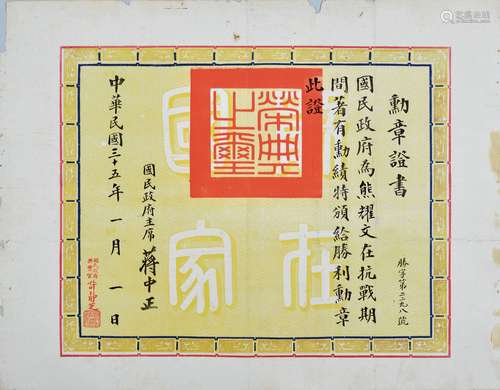 勳章證書
國民政府為熊耀文在抗戰期
間著有勳績特頒給勝利勳章
此證
勝字第二九八號
榮典之璽
國民政府主席 蔣中正
中華民國三十五年一月一日
國
家
在